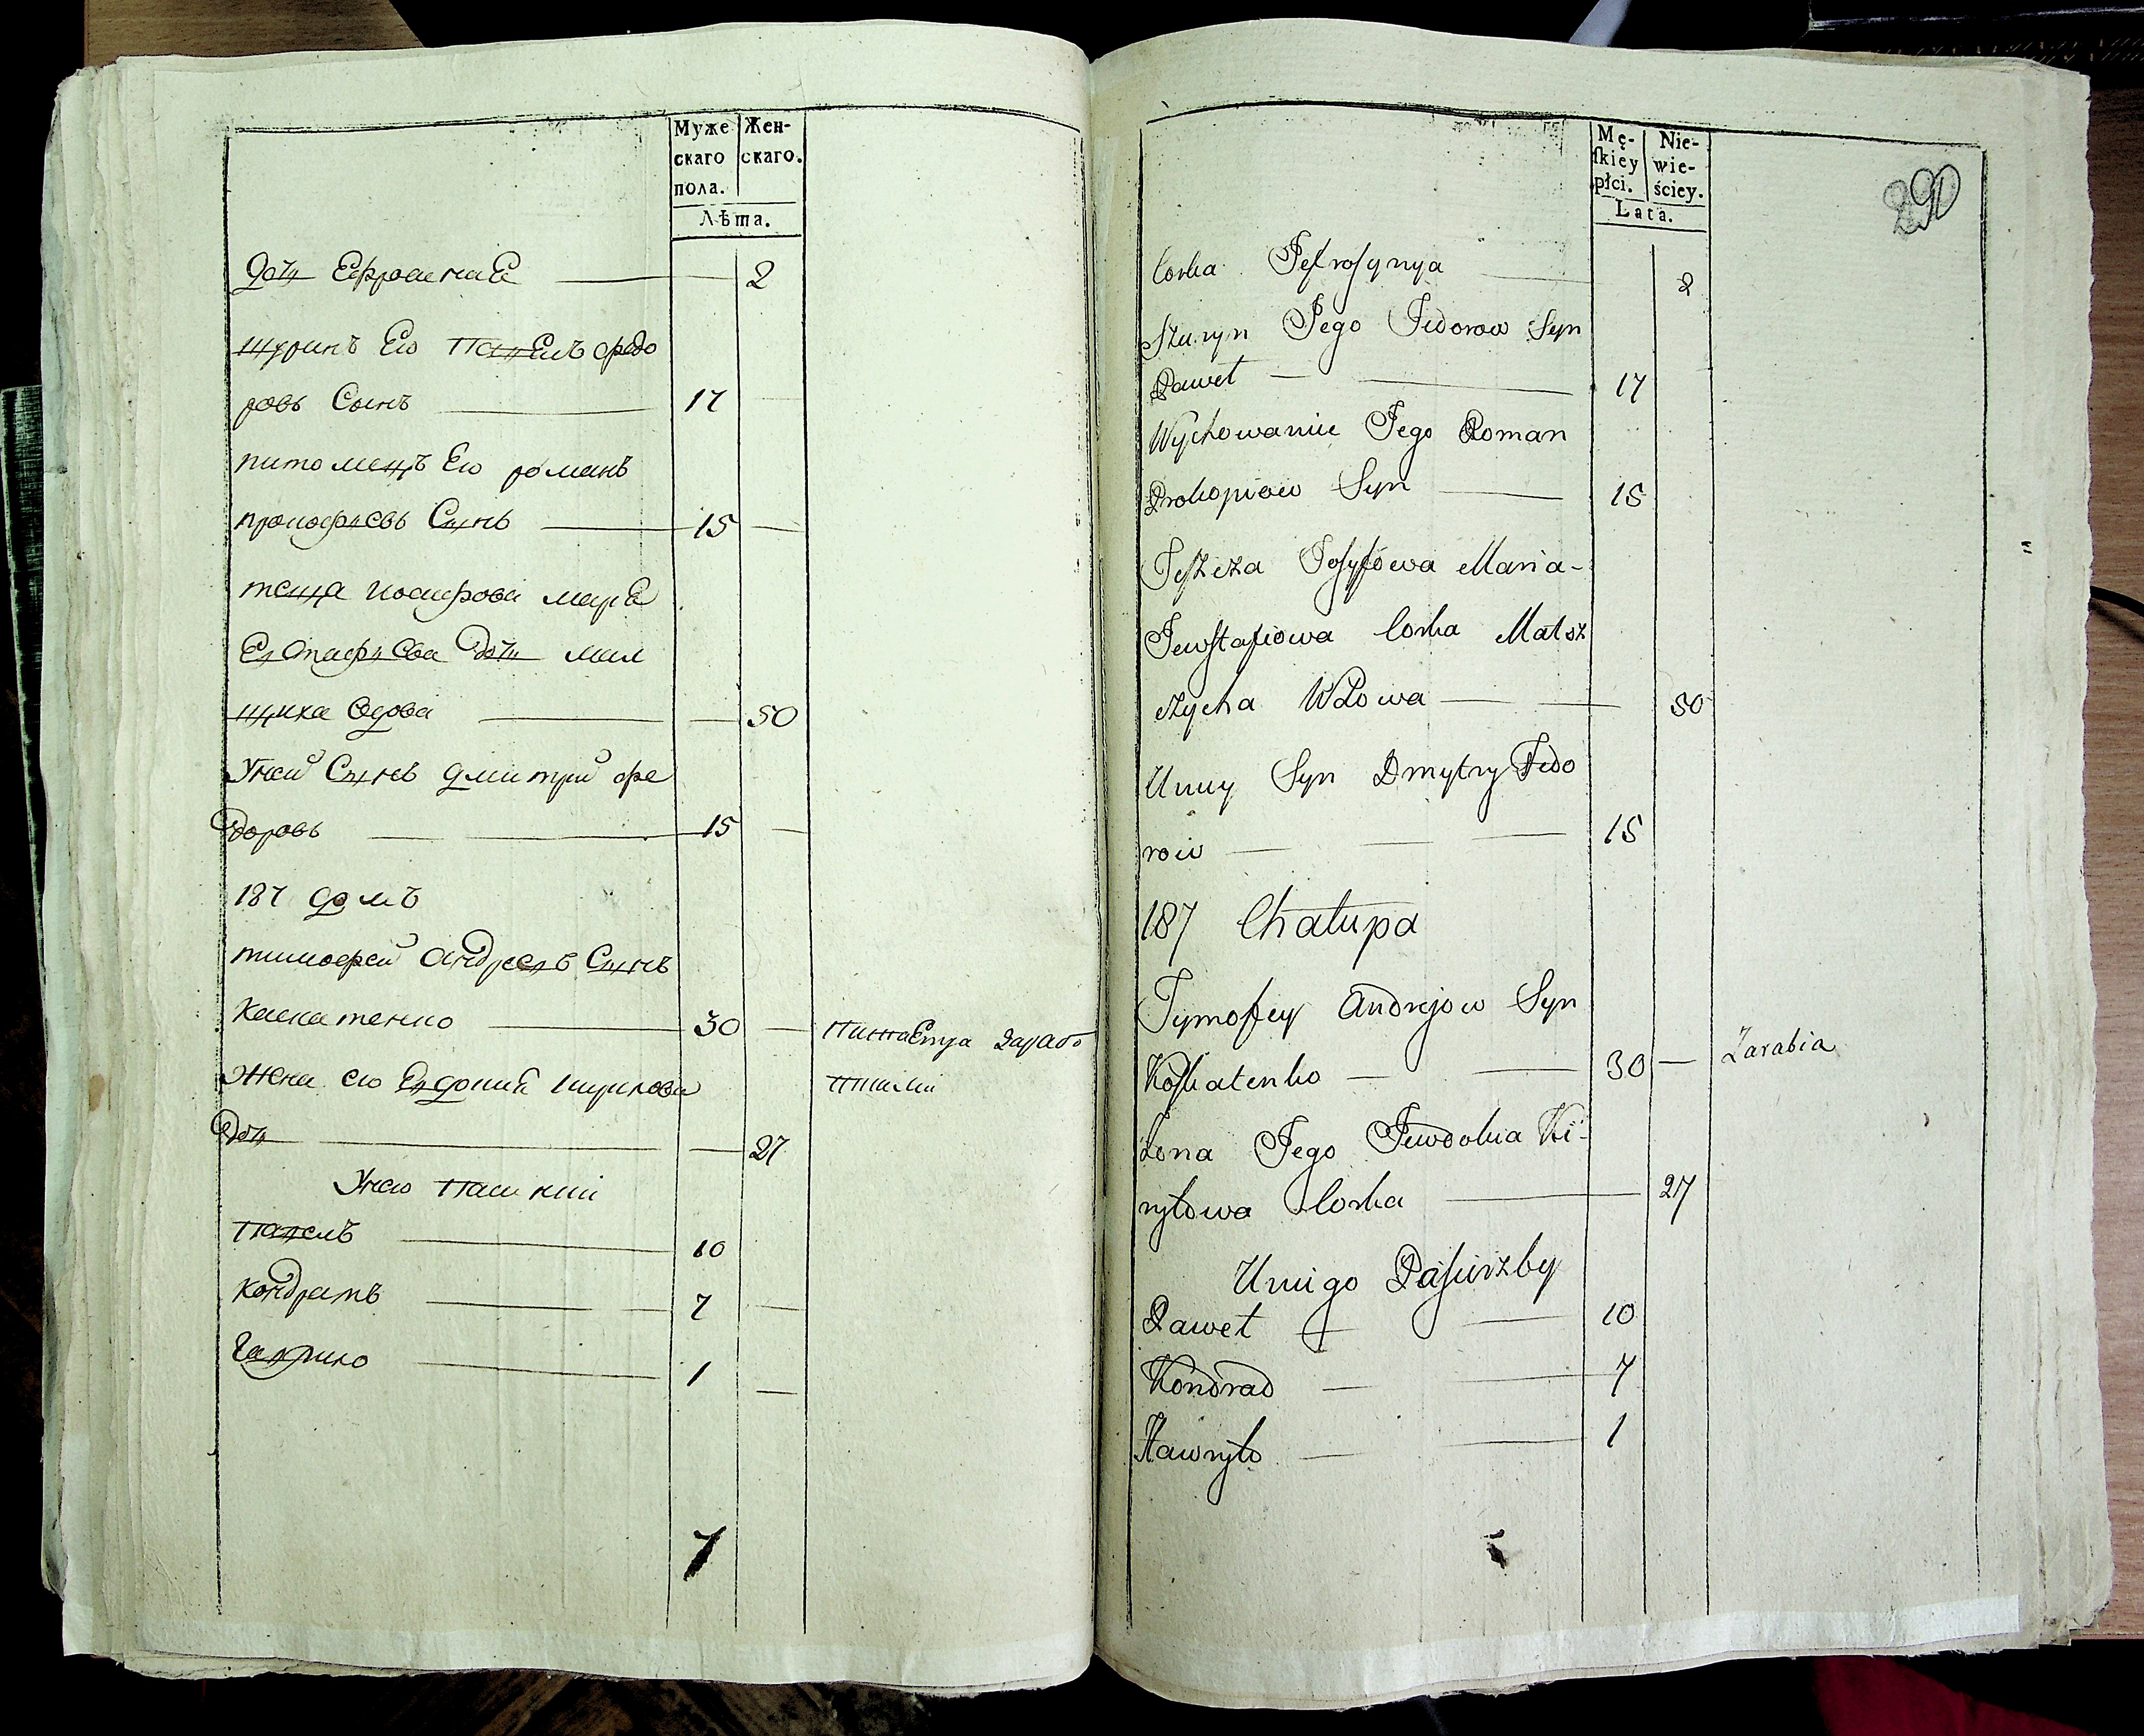 Муже
скаго
пола.
Жен-
скаго.
Лѣта.
дочь Ефросинія 2
шуринъ Его Павелъ федо
ровъ Сынъ 17
питомецъ Его романъ
прокофьевъ Сынъ 15
теща иосифова марія
Евстафьева дочь мел
щика вдова 50
Унеи Сынъ дмитрий фе
доровъ 15
187 домъ
тимофеи андреевъ Сынъ
каскатенко 30 питается зарабо
Жена его Евдокия кирилова тками
дочь 27
Унего пасинки
павелъ 10
кондратъ 7
гаврило 1
7
Mę-
ſkiey
płci.
Nie-
wie-
ściey.
Lata.
290
Corka Jefrosynya 2
Szuryn Jego Fedorow Syn
Paweł 17
Wychowaniec Jego Roman
Prokopiow Syn 15
Teszcza Josyfowa Maria
Jewstafiowa Corka Malsz
czycha Wdowa 50
Uniey Syn Dmytry Fedo
row 15
187 Chałupa
Tymofiey Andrejow Syn
Koskatenko 30 Zarabia
Żona Jego Jewdokia Ki-
ryłowa Corka 27
Uniego Pasierzby
Paweł 10
Kondrad 7
Hawryło 1